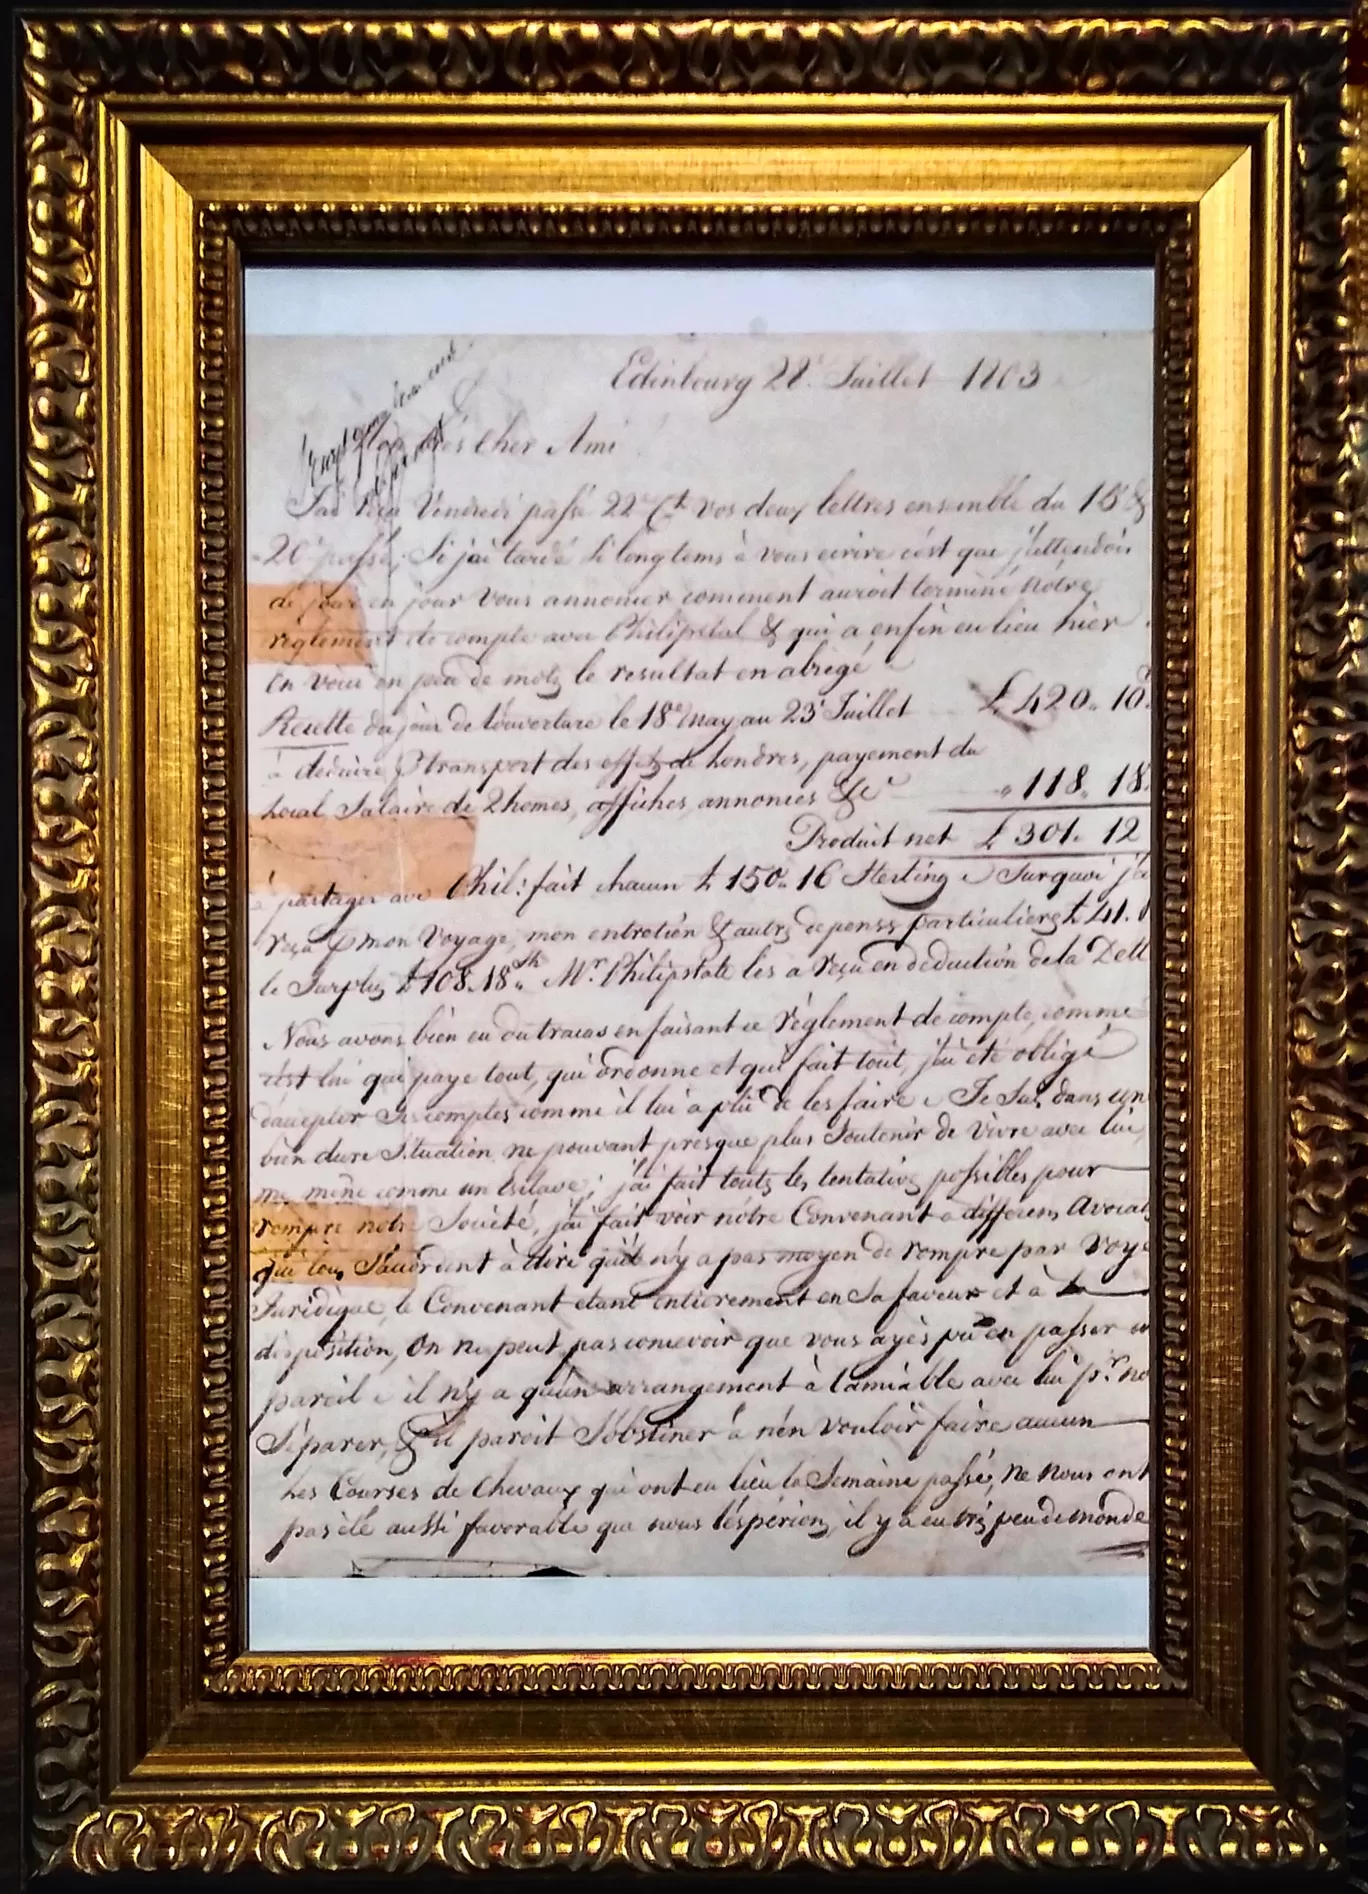 Edinbourg 28.' Juillet 1803
très Cher Ami
J'ai reçu Vendredi passé 22 Ct vos deux lettres ensemble du 18 &
20 passé. Si j'ai tardé si longtems à vous ecrire c'ést que j'attendois
de jour en jour vous annoncer comment auroit terminé nôtre
reglement de compte avec Philipstal & qui a enfin eu lieu hier
en voici en peu de motz le resultat en abregé
Recette du jour de l'ouverture le 18 may au 23 Juillet £ 420. 10
à deduire transport des effetz de Londres, payement du
local Salaire de 2 homes, affiches, annonces &c " 118. 18
Produit net £ 301. 12
à partager avec Phil: fait chacun £ 150. 16 Sterling Surquoi j'ai
reçu mon Voyage, mon entretién & autrz depensz particulierez £ 41.
le Surpluz £ 108.18 Mr. Philipstal les a reçu en deduction de la Dett
Nous avons bién eu du tracas en faisant ce règlement de compte, comme
c'ést lui qui paye tout, qui ordonne et qui fait tout, j'ai été obligé
d'accepter Ses comptes comme il lui a plu de les faire. Je Suis dans un
bién dure Situation ne pouvant presque plus Soutenir de Vivre avec lui,
me mene comme un Esclave; j'ai fait toutz les tentativz possibles pour
rompre notre Société, j'ai fait voir nôtre Convenant a differens Avocatz
qui tous S'accordent à dire qu'il n'y a pas moyen de rompre par Voye
Juridique, le Convenant etant entierement en Sa faveur et à Sa
disposition, On ne peut pas concevoir que vous ayès pu en passer un
pareil il n'y a qu'un arrangement à l'amiable avec lui pr. no
Séparer, & il paroit S'obstiner à n'én vouloir faire aucun
Les Courses de Chevaux qui ont eu lieu la Semaine passé, ne nous ont
pas été aussi favorable que nous l'éspérionz, il y a eu trèz peu de monde